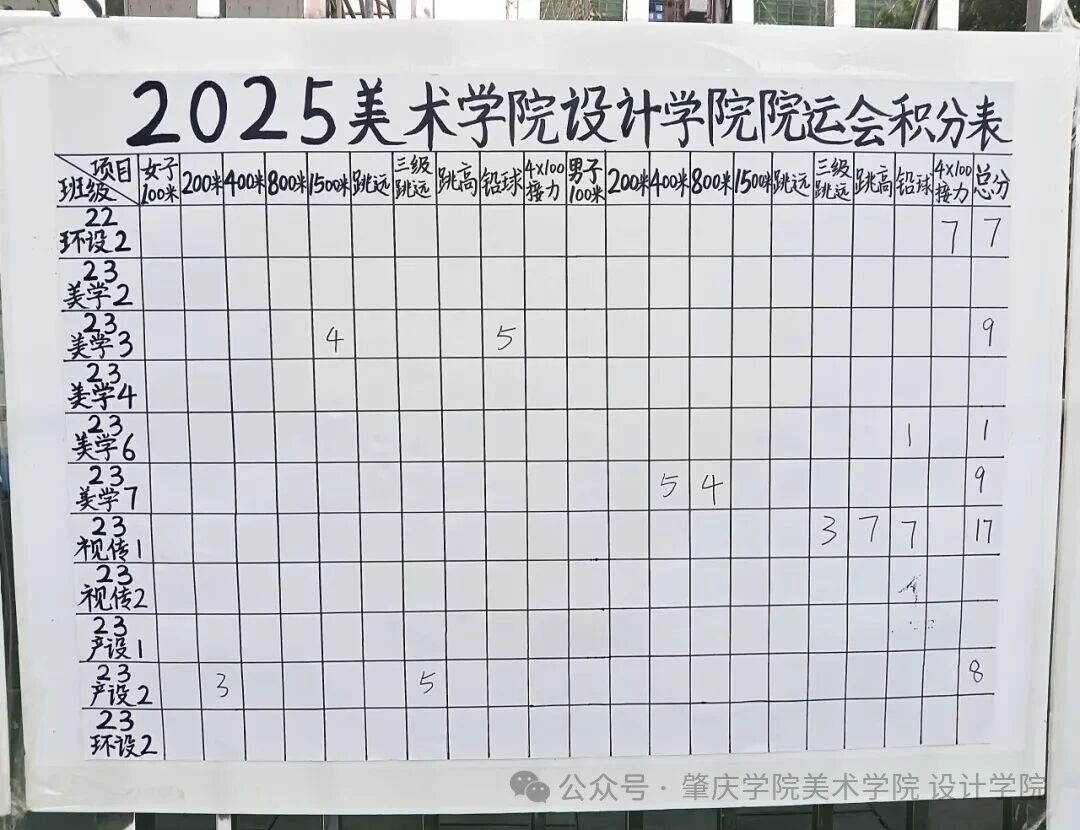 2025美术学院设计学院院运会积分表
项目 班级 女子100米 200米 400米 800米 1500米 跳远 三级跳远 跳高 铅球 4×100接力 男子100米 200米 400米 800米 1500米 跳远 三级跳远 跳高 铅球 4×100接力 总分
22环设2 7 7
23美学2
23美学3 4 5 9
23美学4
23美学6 1 1
23美学7 5 4 9
23视传1 3 7 7 17
23视传2
23产设1
23产设2 3 5 8
23环设2
公众号·肇庆学院美术学院 设计学院